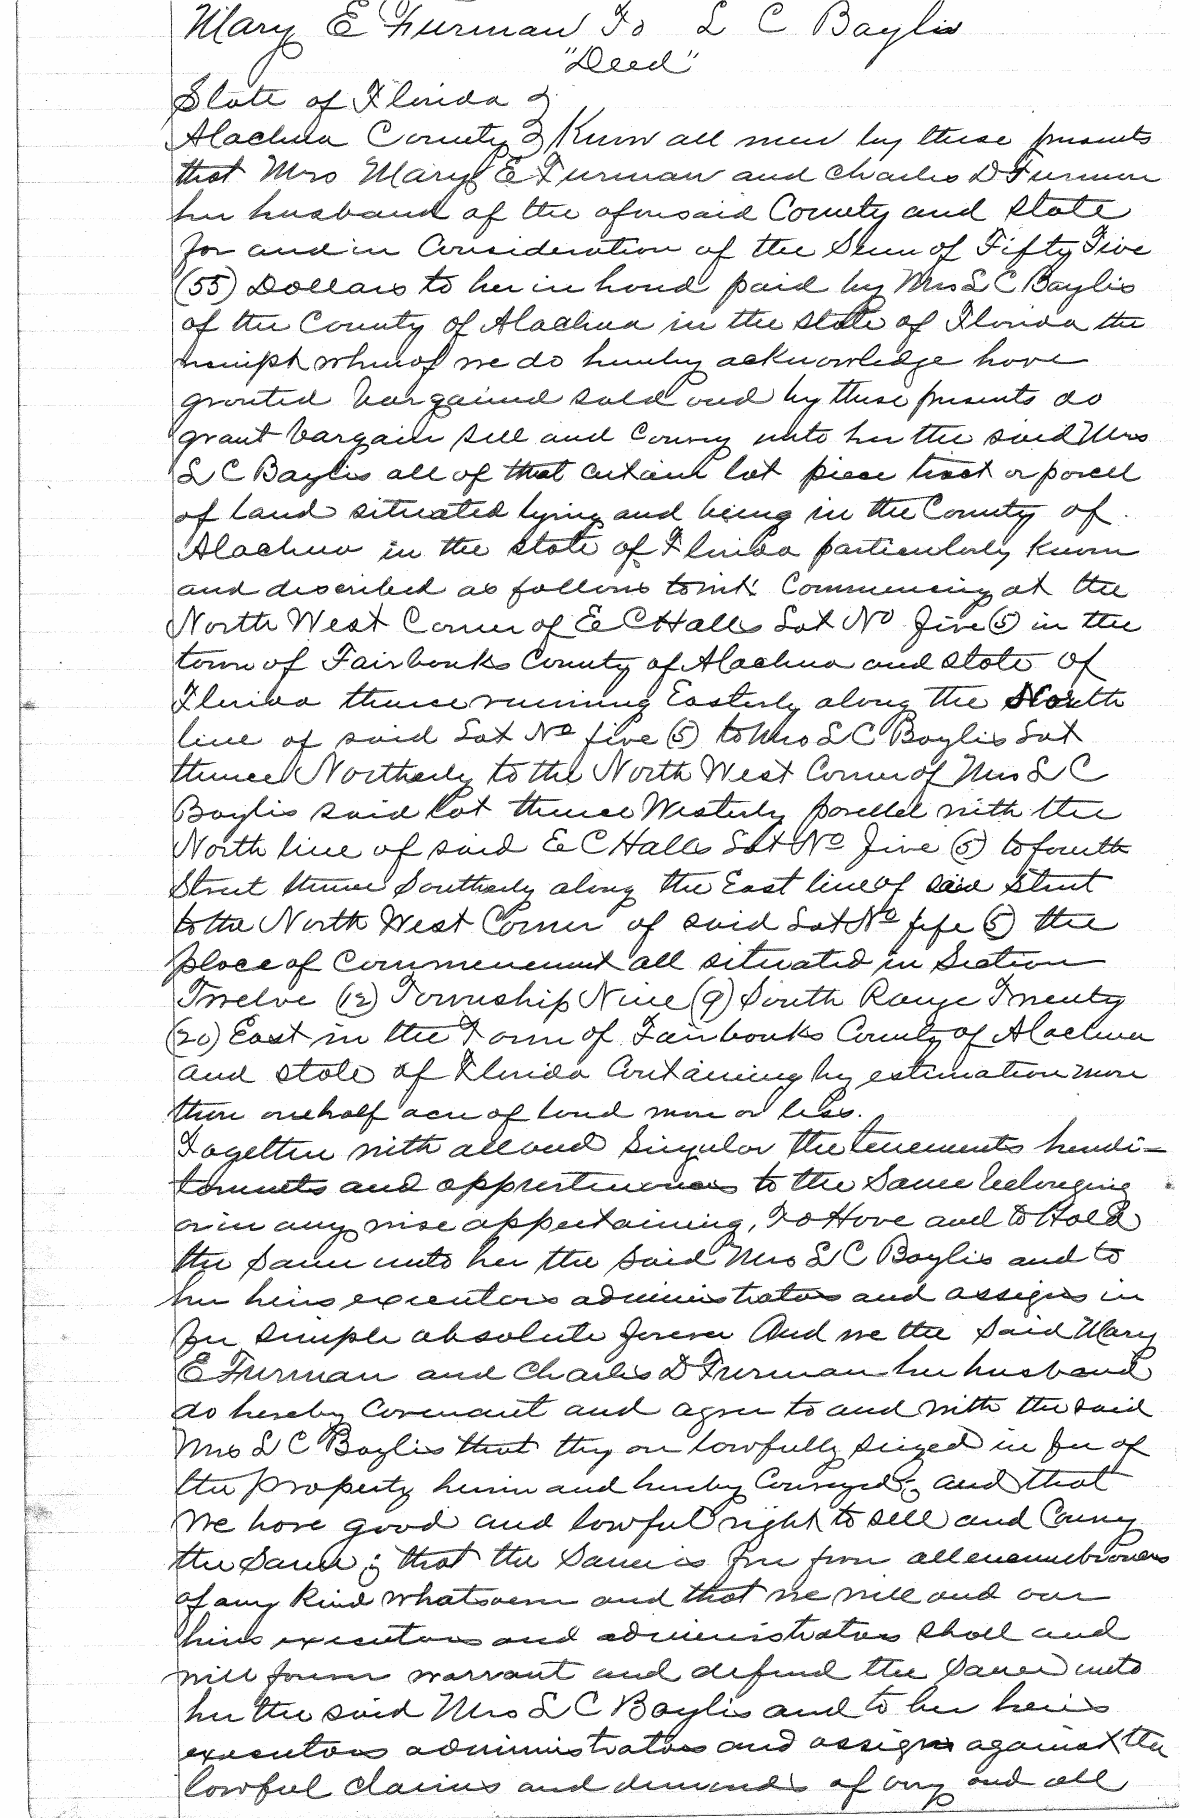 Mary E Furman To L C Baylis
"Deed"
State of Florida }
Alachua County } Know all men by these presents
that Mrs Mary E Furman and Charles D Furman
her husband of the aforesaid County and State
for and in Consideration of the Sum of Fifty Five
(55) Dollars to her in hand paid by Mrs L C Baylis
of the County of Alachua in the State of Florida the
receipt whereof we do hereby acknowledge have
granted bargained sold and by these presents do
grant bargain sell and Convey unto her the said Mrs
L C Baylis all of that certain lot piece tract or parcell
of land situated lying and being in the County of
Alachua in the State of Florida particularly known
and described as follows towit: Commencing at the
North West Corner of E C Halls Lot No five (5) in the
town of Fairbanks County of Alachua and State of
Florida thence running Easterly along the North
line of said Lot No five (5) to Mrs L C Baylis Lot
thence Northerly to the North West Corner of Mrs L C
Baylis said Lot thence Westerly parellel with the
North line of said E C Halls Lot No Five (5) to fourth
Street thence Southerly along the East line of said Street
to the North West Corner of said Lot No fife (5) the
place of Commencement all situated in Section
Twelve (12) Township Nine (9) South Range Twenty
(20) East in the Town of Fairbanks County of Alachua
and State of Florida Containing by estimation more
then one half acre of land more or less.
Together with all and Singular the tenements heredi-
taments and appurtenances to the Same belonging
or in any wise appertaining, To Have and to Hold
the Same unto her the Said Mrs L C Baylis and to
her heirs executors administrators and assigns in
fee simple absolute forever And we the Said Mary
E Furman and Charles D Furman her husband
do hereby Covenant and agree to and with the said
Mrs L C Baylis that they are lawfully seized in fee of
the property herein and hereby Conveyed; and that
We have good and lawful right to sell and Convey
the Same; that the Same is free from all encumbrances
of any Kind whatsoever and that we will and our
heirs executors and administrators shall and
will forever warrant and defend the Same unto
her the said Mrs L C Baylis and to her heirs
executors administrators and assigns against the
lawful claims and demands of any and all